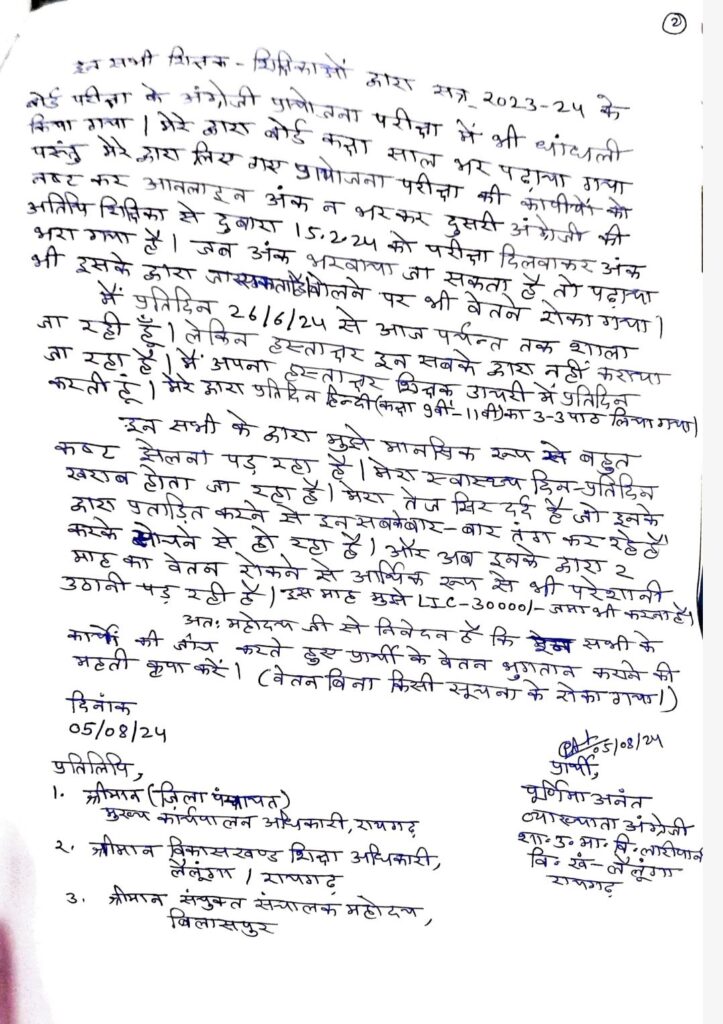 2
इन सभी शिक्षक - शिक्षिकाओं द्वारा सत्र_2023-24 के
बोर्ड परीक्षा के अंग्रेजी प्रायोजना परीक्षा में भी धांधली
किया गया। मेरे द्वारा बोर्ड कक्षा साल भर पढ़ाया गया
परंतु मेरे द्वारा लिए गए प्रायोजना परीक्षा की कापीयों को
नष्ट कर आनलाइन अंक न भरकर दुसरी अंग्रेजी की
अतिथि शिक्षिका से दुबारा 15.2.24 को परीक्षा दिलवाकर अंक
भरा गया है। जब अंक भरवाया जा सकता है तो पढ़ाया
भी इसके द्वारा जा सकता है। बोलने पर भी वेतन रोका गया।
मैं प्रतिदिन 26/6/24 से आज पर्यन्त तक शाला
जा रही हूँ। लेकिन हस्ताक्षर इन सबके द्वारा नहीं कराया
जा रहा है। मैं अपना हस्ताक्षर शिक्षक डायरी में प्रतिदिन
करती हूं। मेरे द्वारा प्रतिदिन हिन्दी (कक्षा 9वीं-11वी) का 3-3 पाठ लिया गया।
इन सभी के द्वारा मुझे मानसिक रूप से बहुत
कष्ट झेलना पड़ रहा है। मेरा स्वास्थ्य दिन-प्रतिदिन
खराब होता जा रहा है। मेरा तेज सिर दर्द है जो इनके
द्वारा प्रताड़ित करने से इन सबके बार-बार तंग कर रहे हैं
करके सोचने से हो रहा है। और अब इनके द्वारा 2
माह का वेतन रोकने से आर्थिक रूप से भी परेशानी
उठानी पड़ रही है। इस माह मुझे LIC-30000/- जमा भी करना है।
अतः महोदय जी से निवेदन है कि इन सभी के
कार्यों की जाँच करते हुए प्रार्थी के वेतन भुगतान कराने की
महती कृपा करें। (वेतन बिना किसी सूचना के रोका गया।)
दिनाँक
05/08/24
05/08/24
प्रार्थी,
पूर्णिमा अनंत
व्याख्याता अंग्रेजी
शा. उ. मा. वि.
वि. खं- लैलूंगा
रायगढ़
प्रतिलिपि,
1. श्रीमान (जिला पंचायत)
मुख्य कार्यपालन अधिकारी, रायगढ़
2. श्रीमान विकासखण्ड शिक्षा अधिकारी,
लैलूंगा / रायगढ़
3. श्रीमान संयुक्त संचालक महोदय,
बिलासपुर